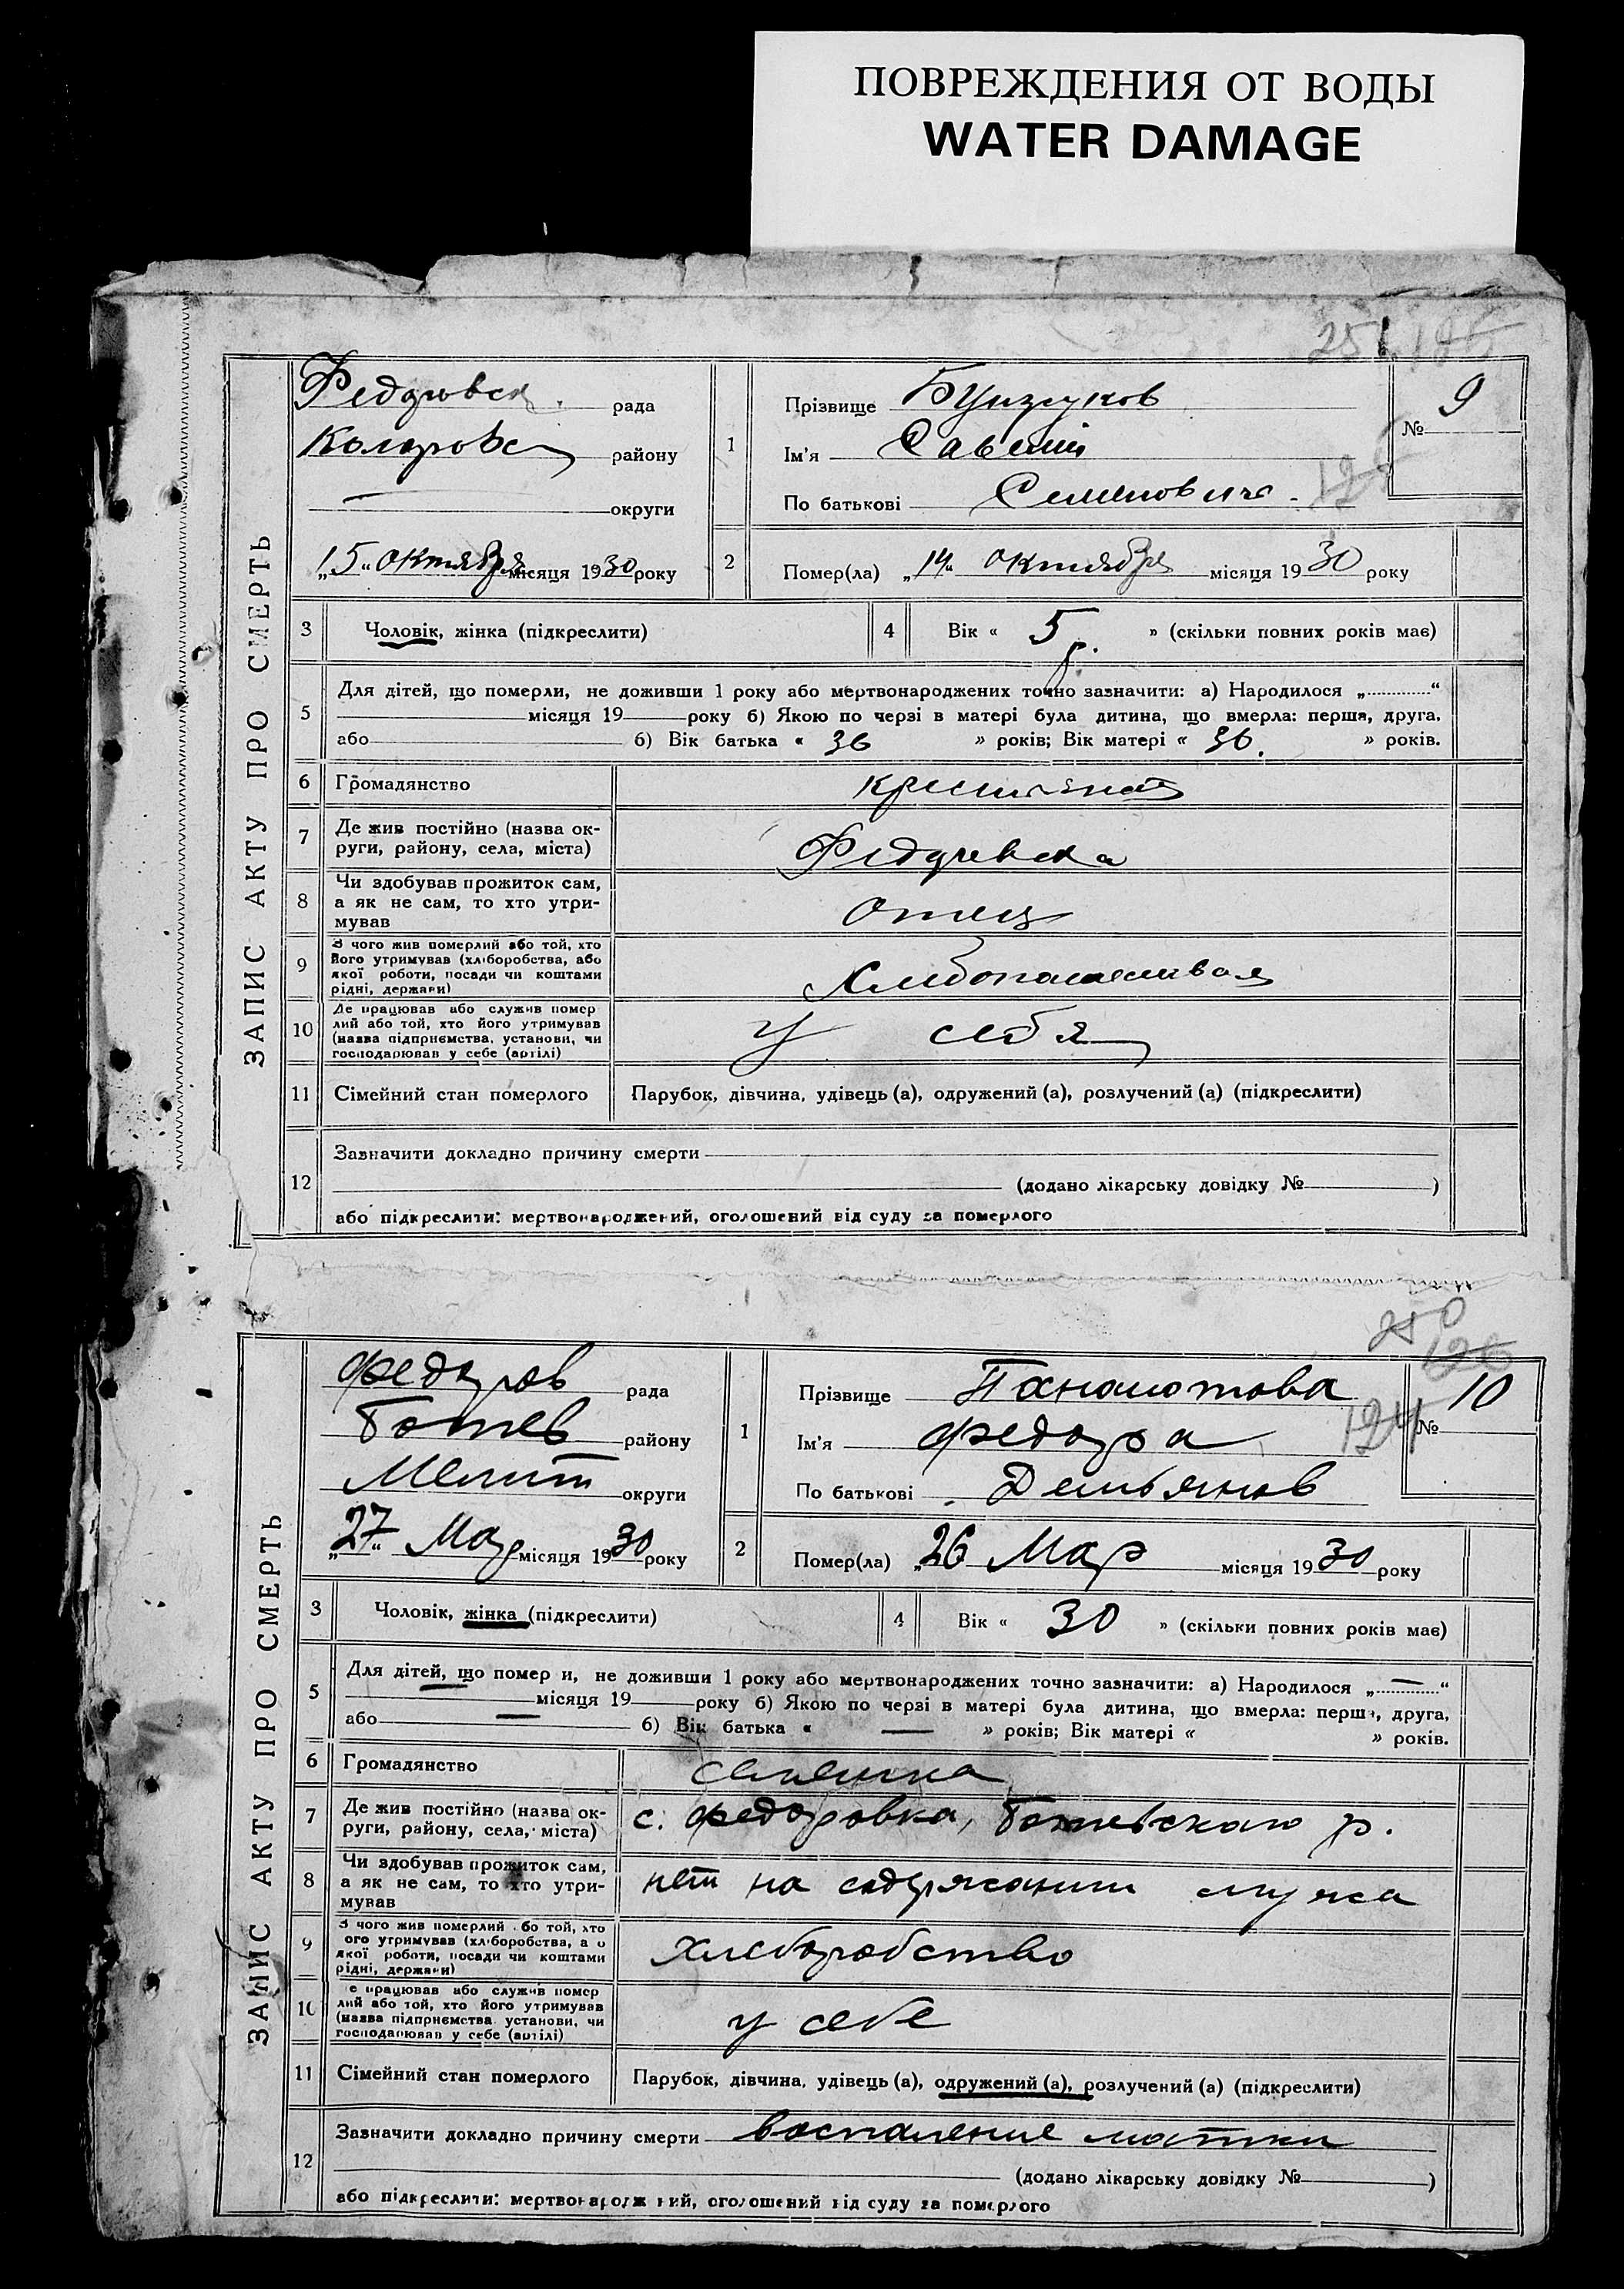 ПОВРЕЖДЕНИЯ ОТ ВОДЫ
WATER DAMAGE
251
ЗАПИС АКТУ ПРО СМЕРТЬ
Федоровск. рада
района
округи
„15“ октября місяця 1930 року
1
Прізвище
Ім'я Савелий
По батькові Семенович
№ 9
2
Помер(ла) „14“ октября місяця 1930 року
3 Чоловік, жінка (підкреслити)
4 Вік « 5 » (скільки повних років має)
5 Для дітей, що померли, не доживши 1 року або мертвонароджених точно зазначити: а) Народилося „............“
місяця 19 року б) Якою по черзі в матері була дитина, що вмерла: перша, друга,
або б) Вік батька « 36 » років; Вік матері « 36. » років.
6 Громадянство
7 Де жив постійно (назва ок-
руги, району, села, міста)
Федоровка
8 Чи здобував прожиток сам,
а як не сам, то хто утри-
мував
отец
9 З чого жив померлий або той, хто
його утримував (хліборобства, або
якої роботи, посади чи коштами
рідні, держави)
10 Де працював або служив помер
лий або той, хто його утримував
(назва підприємства, установи, чи
господарював у себе (артілі)
у себя
11 Сімейний стан померлого Парубок, дівчина, удівець (а), одружений (а), розлучений (а) (підкреслити)
12 Зазначити докладно причину смерти
(додано лікарську довідку № )
або підкреслити: мертвонароджений, оголошений від суду за померлого
250
126
ЗАПИС АКТУ ПРО СМЕРТЬ
Федоров рада
Ботев району
Мелит округи
„27“ Мар місяця 1930 року
1
Прізвище Панаиотова
Ім'я Федора
По батькові Демьянов
124
№ 10
2
Помер(ла) „26 Мар місяця 1930 року
3 Чоловік, жінка (підкреслити)
4 Вік « 30 » (скільки повних років має)
5 Для дітей, що помер и, не доживши 1 року або мертвонароджених точно зазначити: а) Народилося „............“
місяця 19 року б) Якою по черзі в матері була дитина, що вмерла: перш , друга,
або б) Вік батька « — » років; Вік матері « » років.
6 Громадянство
7 Де жив постійно (назва ок-
руги, району, села, міста)
с. Федоровка, Ботевского р.
8 Чи здобував прожиток сам,
а як не сам, то хто утри-
мував
нет на содержании мужа
9 З чого жив померлий або той, хто
ого утримував (хліборобства, а о
якої роботи, посади чи коштами
рідні, держави)
хлеборобство
10 е працював або служив помер
лий або той, хто його утримував
(назва підприємства установи, чи
господарював у себе (артілі)
у себе
11 Сімейний стан померлого Парубок, дівчина, удівець (а), одружений (а), розлучений (а) (підкреслити)
12 Зазначити докладно причину смерти воспаление матки
(додано лікарську довідку № )
або підкреслити: мертвонародж ний, оголошений від суду за померлого